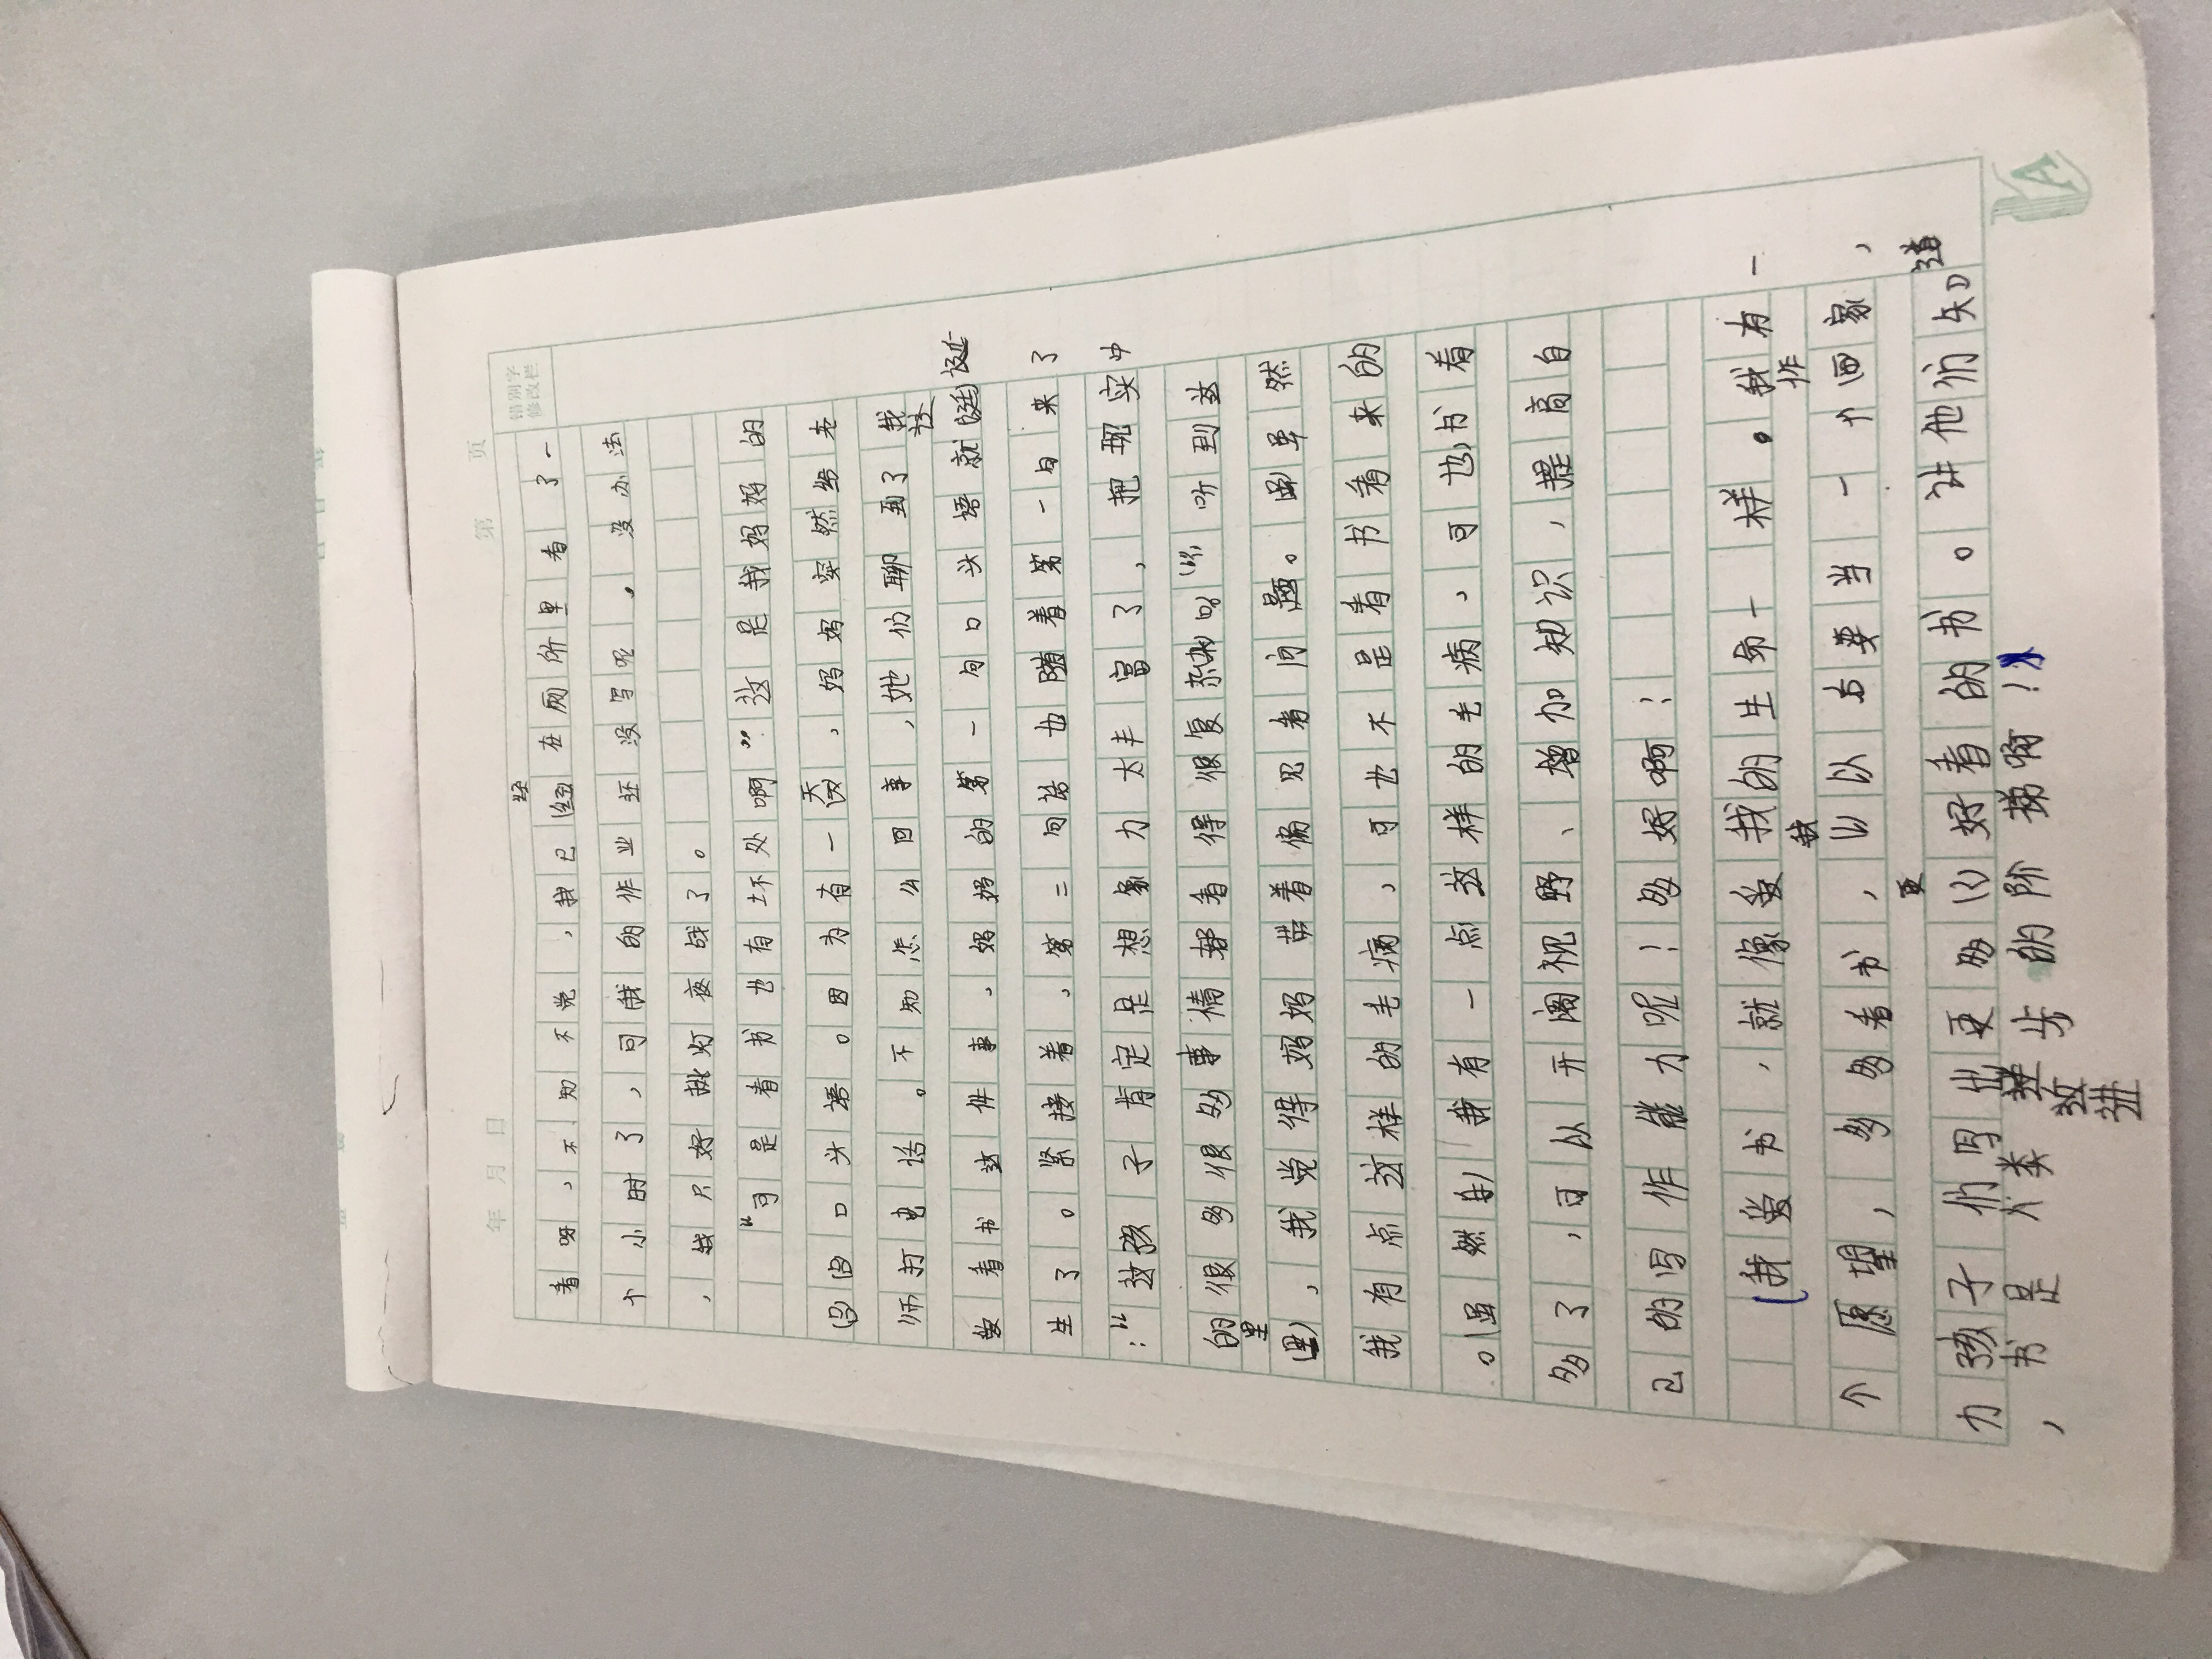 年 月 日 第 页
错别字
修改栏
看呀，不知不觉，我已经在厕所里看了一
个小时了，可我的作业还没写呢。没办法
，我只好挑灯夜战了。
“可是看书也有坏处啊”这是我妈妈的
口头语。因为有一天，妈妈突然给老
师打电话。不知怎么回事，她们聊到了我
爱看书这件事，妈妈的第一句口头语就诞
生了。紧接着，第二句话也随着第一句来了
：“这孩子肯定是想象力太丰富了，把现实中
的很多很多事情都看得很复杂”听到这
里，我觉得妈妈带着偏见看问题。虽然
我有点这样的毛病，可也不是看书看来的
。虽然我有一点点这样的毛病，可书看
多了，可以开阔视野、增加知识，提高自
己的写作能力呢！多好啊！
我爱书，就像爱我的生命一样。我有一
个愿望，多多看书，我以后要当一个作家，
为孩子们写出更多更好看的书。让他们知道
，书是人类进步的阶梯啊！